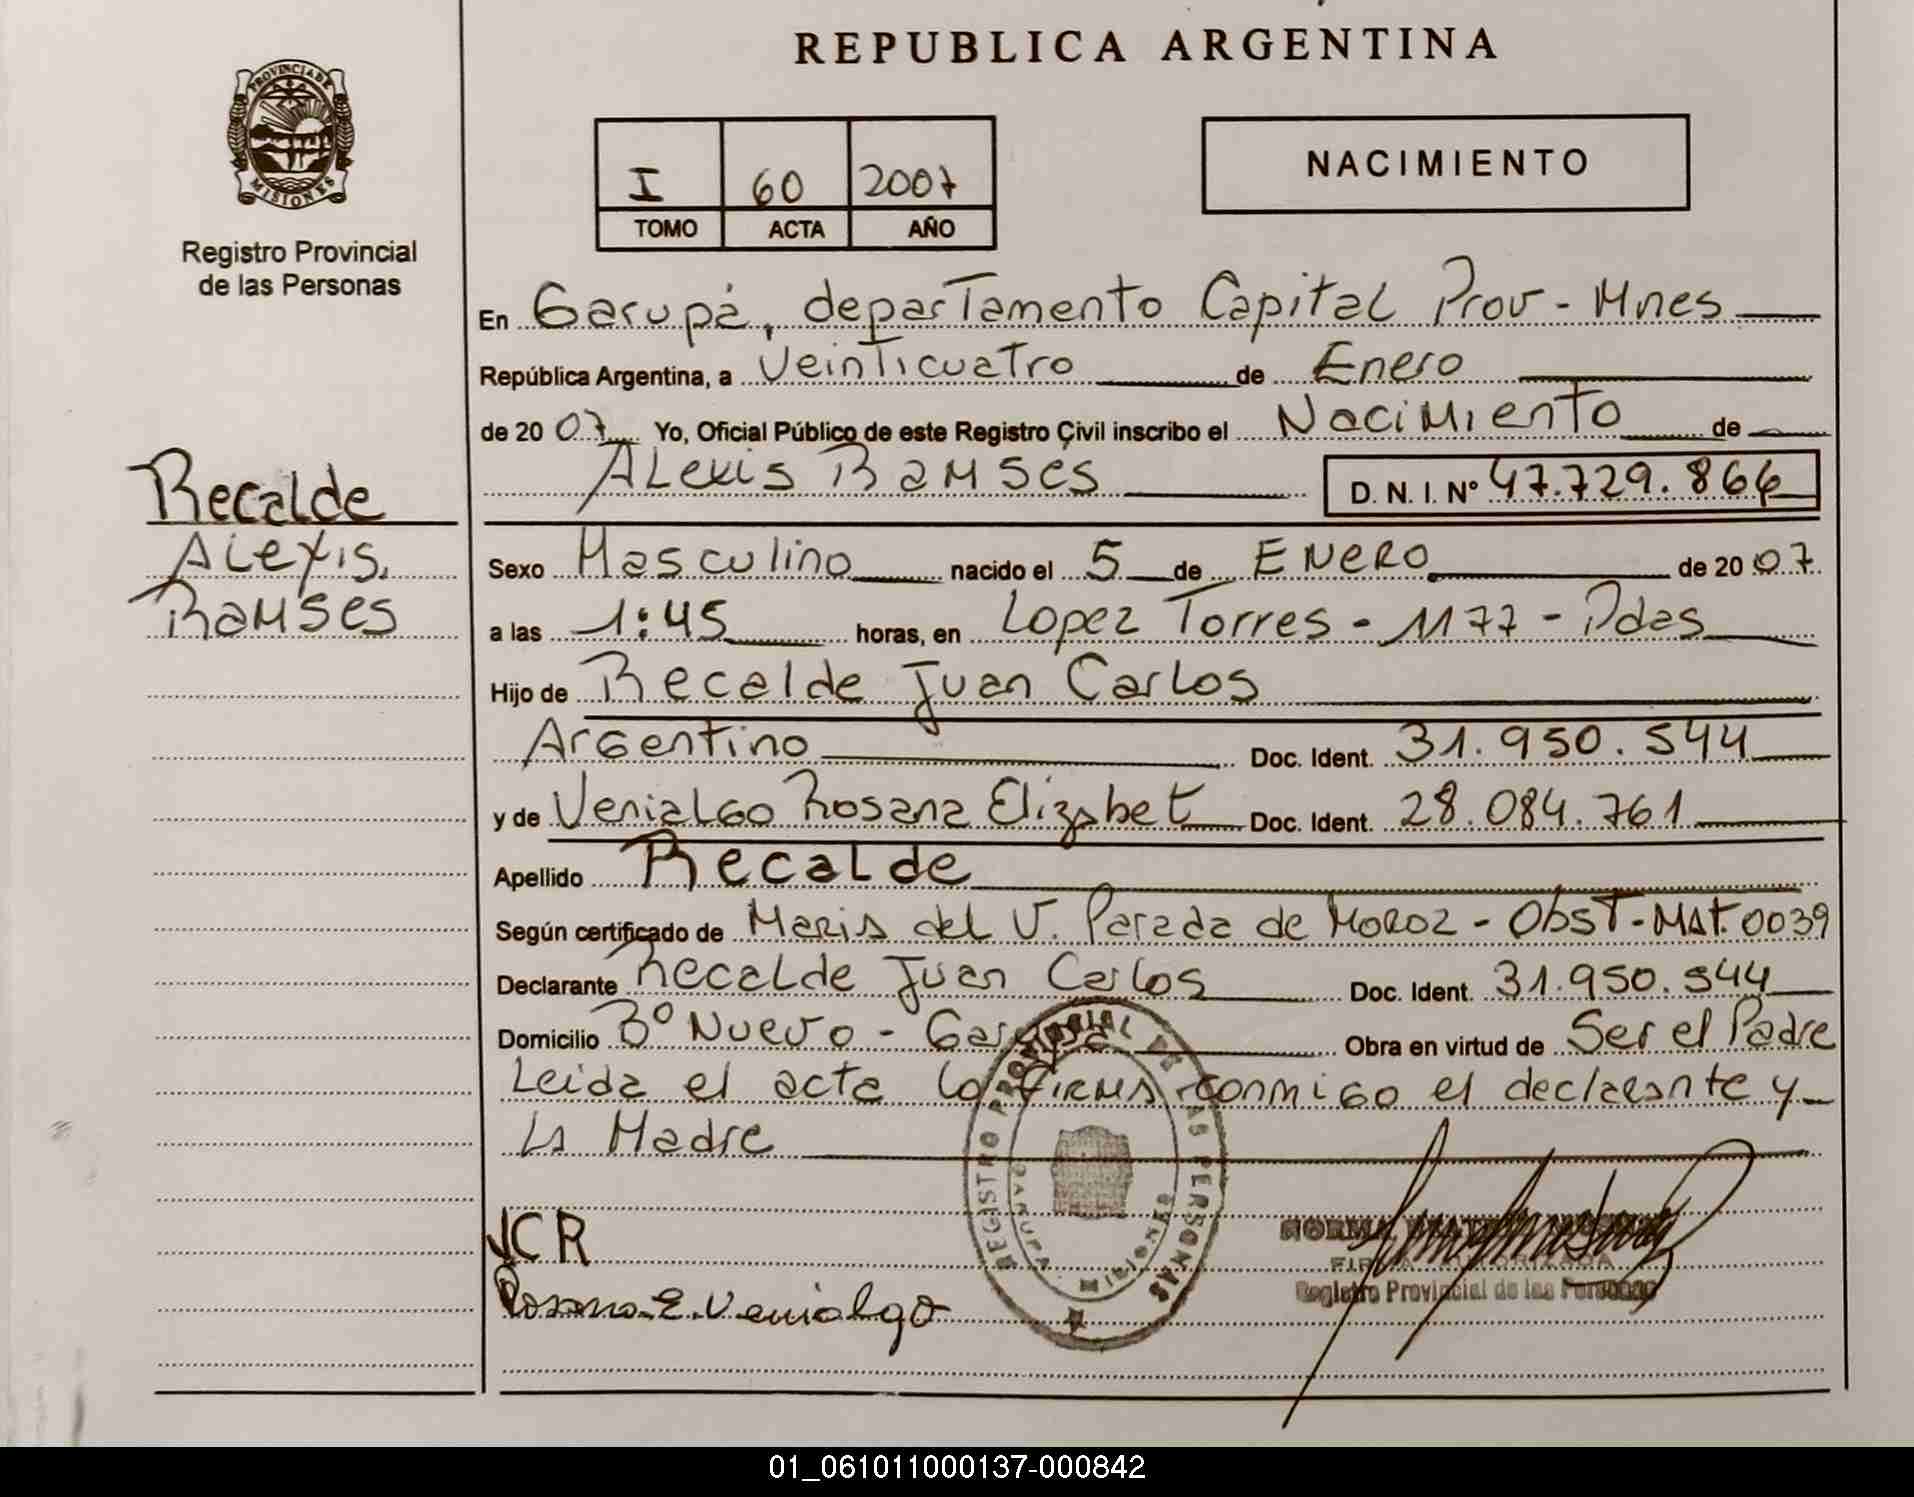 REPUBLICA ARGENTINA
PROVINCIA DE MISIONES
Registro Provincial
de las Personas
I 60 2007
TOMO ACTA AÑO
NACIMIENTO
En Garupá, departamento Capital Prov - Mnes
República Argentina, a Veinticuatro de Enero
de 2007 Yo, Oficial Público de este Registro Civil inscribo el Nacimiento de
Alexis Ramses D. N. I. Nº 47.729.866
Recalde
Alexis,
Ramses
Sexo Masculino nacido el 5 de ENERO de 2007
a las 1:45 horas, en Lopez Torres - 1177 - Pdas
Hijo de Recalde Juan Carlos
Argentino Doc. Ident. 31.950.544
y de Venialgo Rosana Elizabet Doc. Ident. 28.084.761
Apellido Recalde
Según certificado de Maris del V. Parada de Moroz - Obst - Mat. 0039
Declarante Recalde Juan Carlos Doc. Ident. 31.950.544
Domicilio Bº Nuevo - Garupá Obra en virtud de Ser el Padre
Leida el acta la firma conmigo el declarante y
La Madre
REGISTRO PROVINCIAL DE LAS PERSONAS
GARUPA MISIONES
JCR
Rosana E. Venialgo
NORMA
FIRMA AUTORIZADA
Registro Provincial de las Personas
01_061011000137-000842